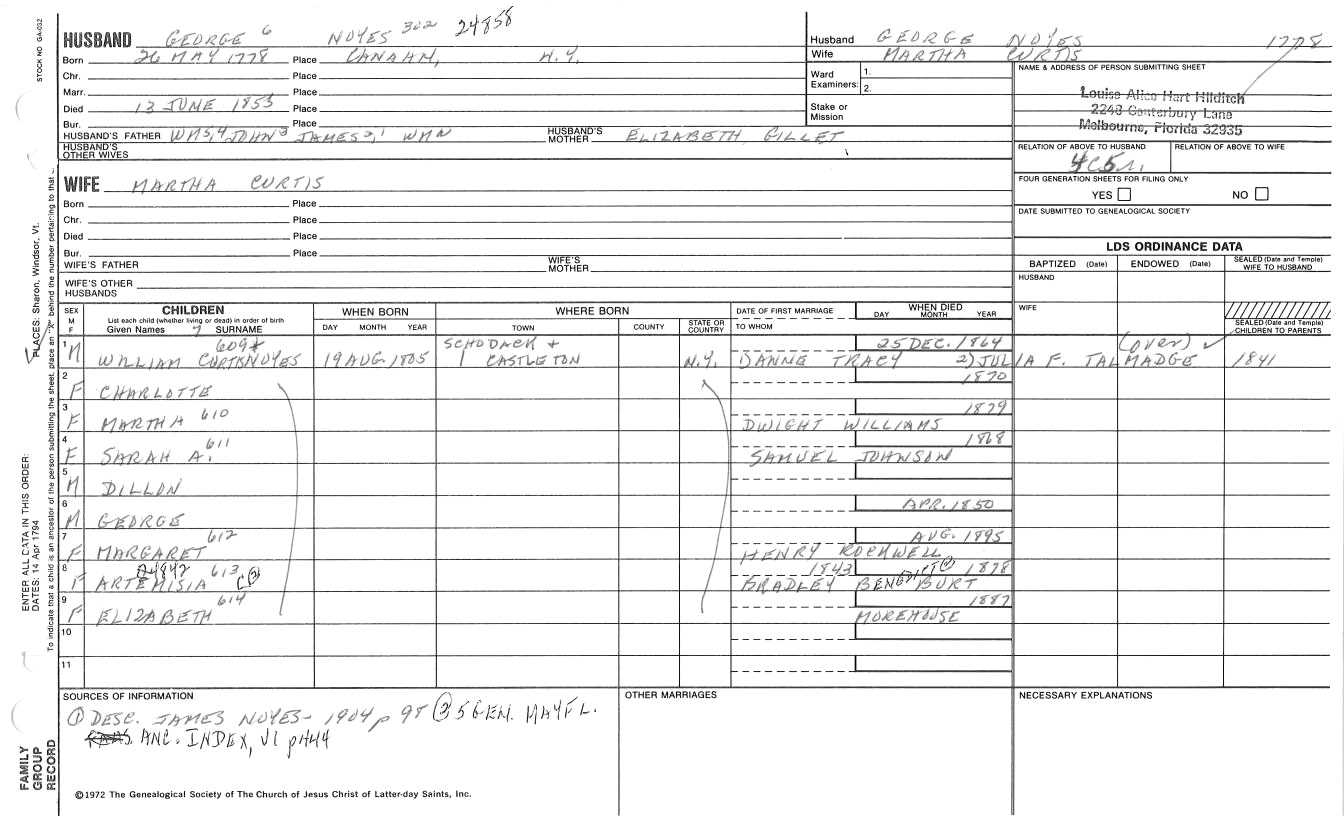 STOCK NO GA-032
HUSBAND GEORGE 6 NOYES 302 24858
Born 26 MAY 1778 Place CANAHN, N.Y.
Chr. Place
Marr. Place
Died 13 JUNE 1853 Place
Bur. Place
HUSBAND'S FATHER WM5,4 JOHN3 JAMES2,1 WMN HUSBAND'S MOTHER ELIZABETH GILLET
HUSBAND'S OTHER WIVES
Husband GEORGE NOYES 1778
Wife MARTHA CURTIS
Ward Examiners: 1. 2.
Stake or Mission
NAME & ADDRESS OF PERSON SUBMITTING SHEET
Louise Alice Hart Hilditch
2248 Canterbury Lane
Melbourne, Florida 32935
RELATION OF ABOVE TO HUSBAND RELATION OF ABOVE TO WIFE
4C5r.
FOUR GENERATION SHEETS FOR FILING ONLY
YES NO
DATE SUBMITTED TO GENEALOGICAL SOCIETY
WIFE MARTHA CURTIS
Born Place
Chr. Place
Died Place
Bur. Place
WIFE'S FATHER WIFE'S MOTHER
WIFE'S OTHER HUSBANDS
LDS ORDINANCE DATA
BAPTIZED (Date) ENDOWED (Date) SEALED (Date and Temple) WIFE TO HUSBAND
HUSBAND
WIFE
SEALED (Date and Temple) CHILDREN TO PARENTS
SEX M F CHILDREN List each child (whether living or dead) in order of birth Given Names 7 SURNAME
WHEN BORN DAY MONTH YEAR
WHERE BORN TOWN COUNTY STATE OR COUNTRY
DATE OF FIRST MARRIAGE TO WHOM
WHEN DIED DAY MONTH YEAR
1 M WILLIAM CURTIS NOYES 609 19 AUG. 1805 SCHODACK + CASTLETON N.Y. 25 DEC. 1864 (over) ✓
DANNE TRACY 2) JULIA F. TALMADGE 1841
2 F CHARLOTTE 1870
3 F MARTHA 610 1879
DWIGHT WILLIAMS
4 F SARAH A. 611 1868
SAMUEL JOHNSON
5 M DILLON
6 M GEORGE APR. 1850
7 F MARGARET 612 AUG. 1895
HENRY ROCKWELL
8 F ARTEMISIA 613 1843 1878
BRADLEY BENEDICT BURT
9 F ELIZABETH 614 1887
MOREHOUSE
10
11
SOURCES OF INFORMATION
① DESC. JAMES NOYES - 1904 p 98 ② 5 GEN. MAYFL.
ANC. INDEX, VI p444
OTHER MARRIAGES
NECESSARY EXPLANATIONS
©1972 The Genealogical Society of The Church of Jesus Christ of Latter-day Saints, Inc.
FAMILY GROUP RECORD
ENTER ALL DATA IN THIS ORDER:
DATES: 14 Apr 1794
PLACES: Sharon, Windsor, Vt.
To indicate that a child is an ancestor of the person submitting the sheet, place an "X" behind the number pertaining to that